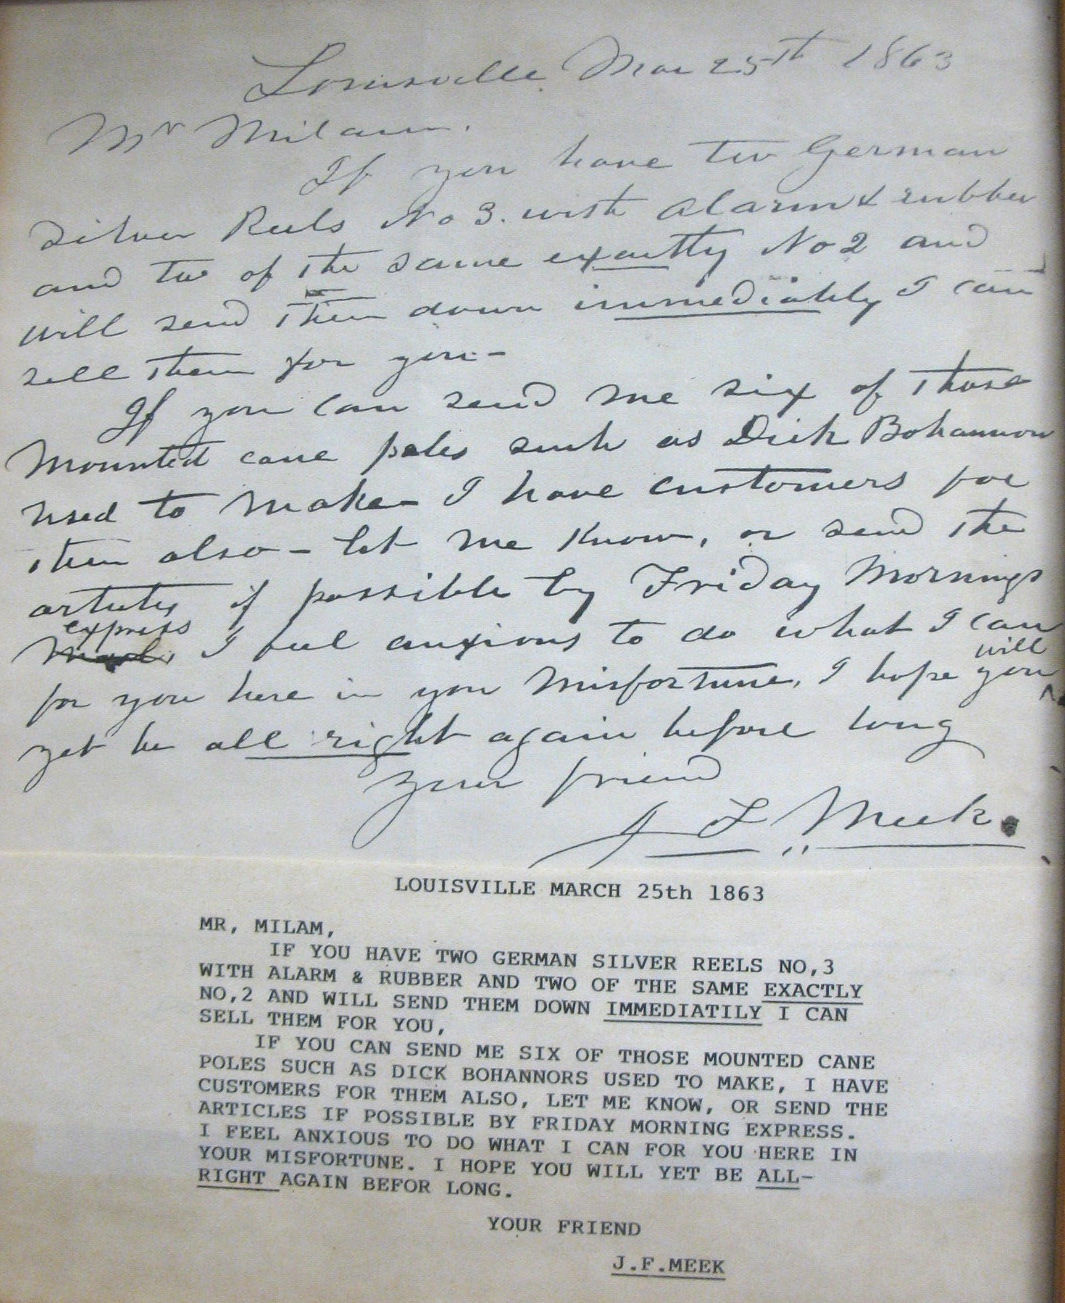 Louisville Mar 25th 1863
Mr Milam.
If you have two German
Silver Reels No 3. with Alarm & rubber
and two of the same exactly No 2 and
will send them down immediately I can
sell them for you -
If you can send me six of those
Mounted cane poles such as Dick Bohannon
used to make - I have customers for
them also - let me know, or send the
articles if possible by Friday Mornings
express
Mail, I feel anxious to do what I can
will
for you here in you Misfortune, I hope you
yet be all right again before long
Your friend
J F Meek.
LOUISVILLE MARCH 25th 1863
MR, MILAM,
IF YOU HAVE TWO GERMAN SILVER REELS NO,3
WITH ALARM & RUBBER AND TWO OF THE SAME EXACTLY
NO,2 AND WILL SEND THEM DOWN IMMEDIATILY I CAN
SELL THEM FOR YOU,
IF YOU CAN SEND ME SIX OF THOSE MOUNTED CANE
POLES SUCH AS DICK BOHANNORS USED TO MAKE, I HAVE
CUSTOMERS FOR THEM ALSO, LET ME KNOW, OR SEND THE
ARTICLES IF POSSIBLE BY FRIDAY MORNING EXPRESS.
I FEEL ANXIOUS TO DO WHAT I CAN FOR YOU HERE IN
YOUR MISFORTUNE. I HOPE YOU WILL YET BE ALL-
RIGHT AGAIN BEFOR LONG.
YOUR FRIEND
J.F.MEEK